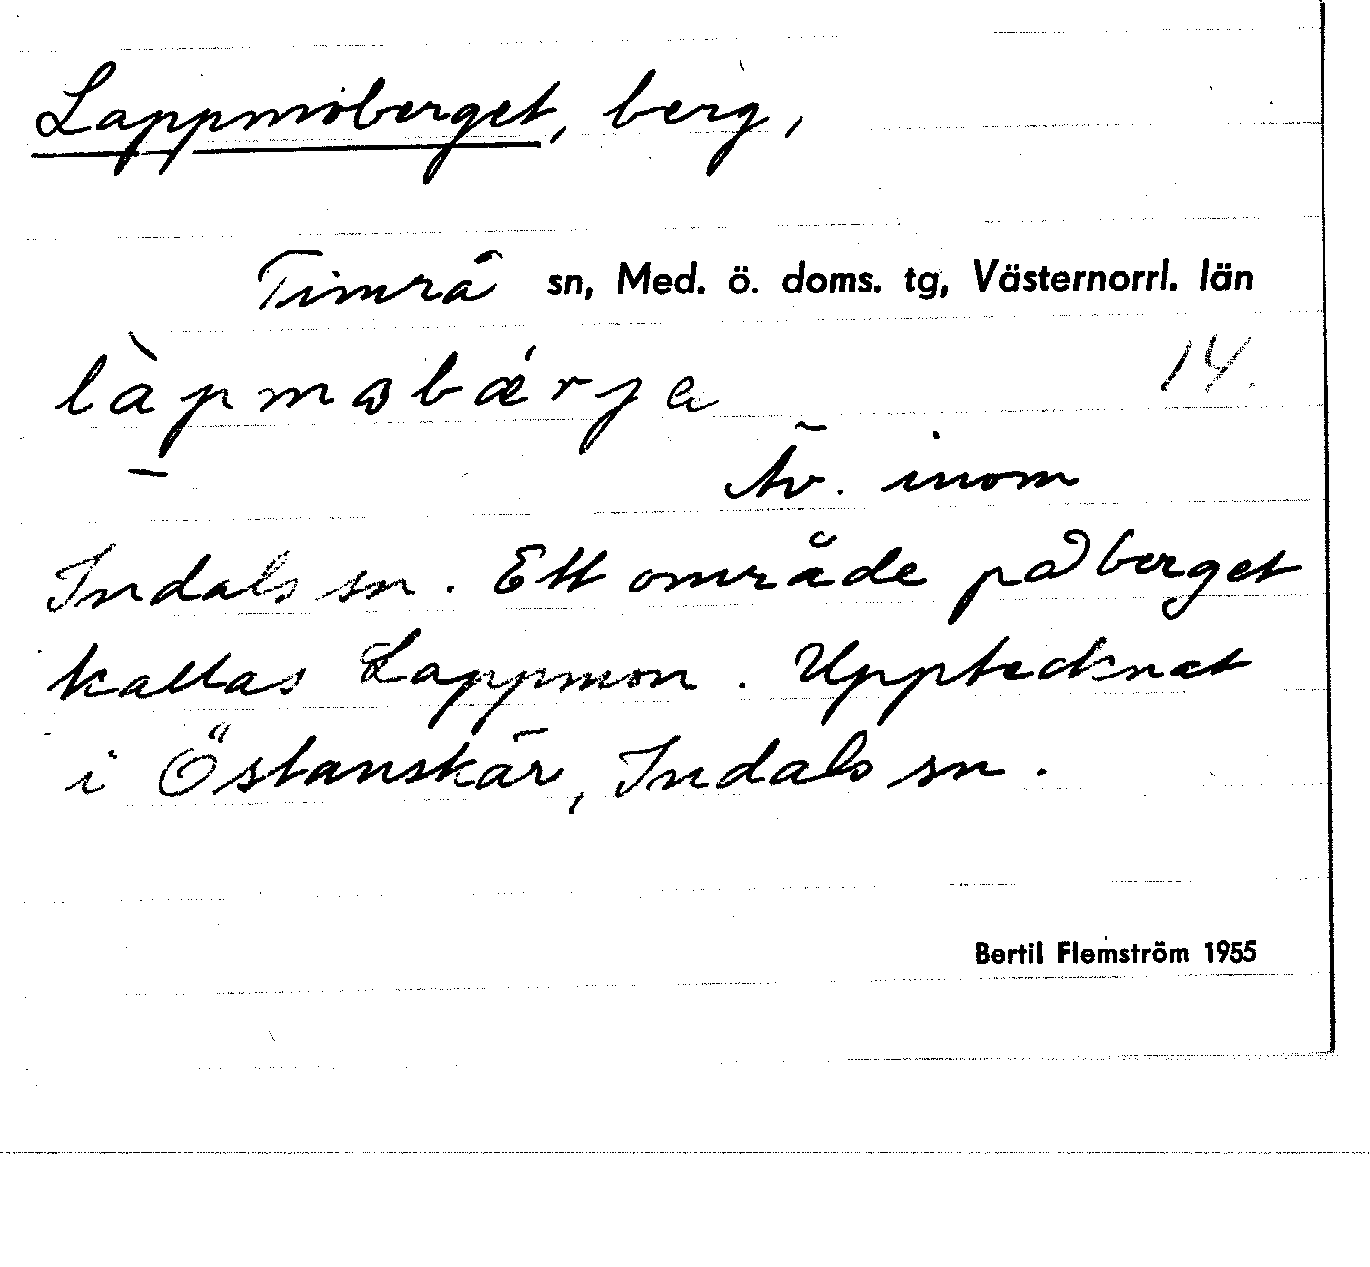 Lappmoberget, berg,
Timrå sn, Med. ö. doms. tg, Västernorrl. län
14.
Äv. inom
Indals sn. Ett område på berget
kallas Lappmon. Upptecknat
i Östanskär, Indals sn.
Bertil Flemström 1955